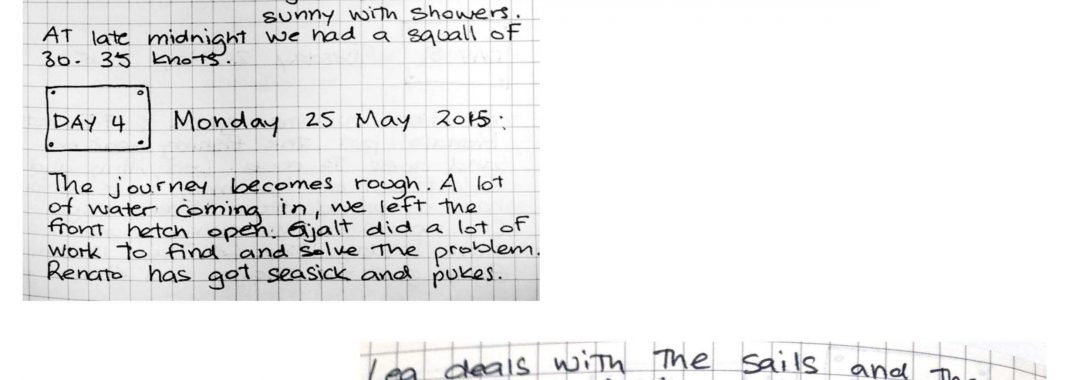 sunny with showers.
At late midnight we had a squall of
30- 35 knots.
DAY 4
Monday 25 May 2015:
The journey becomes rough. A lot
of water coming in, we left the
front hetch open. Sjalt did a lot of
work to find and solve the problem.
Renato has got seasick and pukes.
Lea deals with the sails and the